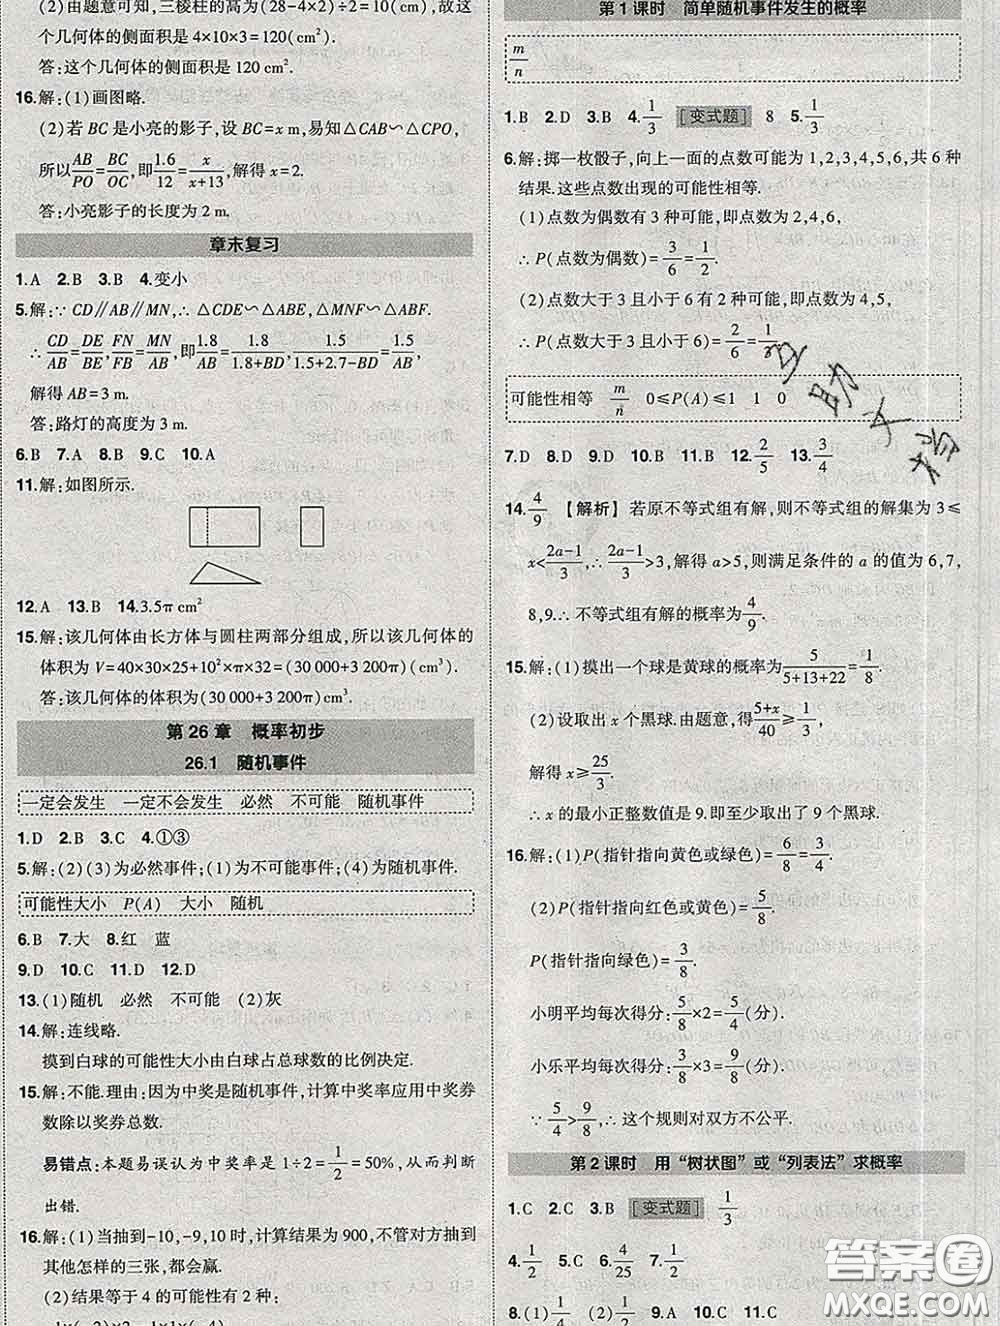 (2)由题意可知,三棱柱的高为(28-4×2)÷2=10(cm),故这
个几何体的侧面积是 4×10×3=120(cm²).
答:这个几何体的侧面积是 120 cm².
16.解:(1)画图略.
(2)若 BC 是小亮的影子,设 BC=x m,易知△CAB∽△CPO,
所以AB/PO=BC/OC,即1.6/12=x/(x+13),解得 x=2.
答:小亮影子的长度为 2 m.
章末复习
1.A 2.B 3.B 4.变小
5.解:∵CD∥AB∥MN,∴△CDE∽△ABE,△MNF∽△ABF.
∴CD/AB=DE/BE,FN/FB=MN/AB,即1.8/AB=1.8/(1.8+BD),1.5/(1.5+2.7-BD)=1.5/AB,
解得 AB=3 m.
答:路灯的高度为 3 m.
6.B 7.A 8.B 9.C 10.A
11.解:如图所示.
12.A 13.B 14.3.5π cm²
15.解:该几何体由长方体与圆柱两部分组成,所以该几何体的
体积为 V=40×30×25+10²×π×32=(30 000+3 200π)(cm³).
答:该几何体的体积为(30 000+3 200π)cm³.
第 26 章 概率初步
26.1 随机事件
一定会发生 一定不会发生 必然 不可能 随机事件
1.D 2.B 3.C 4.①③
5.解:(2)(3)为必然事件;(1)为不可能事件;(4)为随机事件.
可能性大小 P(A) 大小 随机
6.B 7.大 8.红 蓝
9.D 10.C 11.D 12.D
13.(1)随机 必然 不可能 (2)灰
14.解:连线略.
摸到白球的可能性大小由白球占总球数的比例决定.
15.解:不能.理由:因为中奖是随机事件,计算中奖率应用中奖券
数除以奖券总数.
易错点:本题易误认为中奖率是 1÷2=1/2=50%,从而判断
出错.
16.解:(1)当抽到-10,-9,10时,计算结果为 900,不管对方抽到
其他怎样的三张,都会赢.
(2)结果等于 4 的可能性有 2 种:
第 1 课时 简单随机事件发生的概率
m/n
1.B 2.D 3.B 4.1/3 [变式题] 8 5.1/3
6.解:掷一枚骰子,向上一面的点数可能为 1,2,3,4,5,6,共 6 种
结果.这些点数出现的可能性相等.
(1)点数为偶数有 3 种可能,即点数为 2,4,6,
∴P(点数为偶数)=3/6=1/2.
(2)点数大于 3 且小于 6 有 2 种可能,即点数为 4,5,
∴P(点数大于 3 且小于 6)=2/6=1/3.
可能性相等 m/n 0≤P(A)≤1 1 0
7.D 8.B 9.D 10.B 11.B 12.2/5 13.3/4
14.4/9 【解析】若原不等式组有解,则不等式组的解集为 3≤
x<(2a-1)/3,∴(2a-1)/3>3,解得 a>5,则满足条件的 a 的值为 6,7,
8,9.∴不等式组有解的概率为4/9.
15.解:(1)摸出一个球是黄球的概率为5/(5+13+22)=1/8.
(2)设取出 x 个黑球.由题意,得(5+x)/40≥1/3,
解得 x≥25/3.
∴x 的最小正整数值是 9.即至少取出了 9 个黑球.
16.解:(1)P(指针指向黄色或绿色)=6/8=3/4.
(2)P(指针指向红色或黄色)=5/8.
P(指针指向绿色)=3/8.
小明平均每次得分:5/8×2=5/4(分).
小乐平均每次得分:3/8×3=9/8(分).
∵5/4>9/8,∴这个规则对双方不公平.
第 2 课时 用“树状图”或“列表法”求概率
1.C 2.C 3.B [变式题] 1/3
4.1/2 5.1/2 6.4/25 7.1/2
8.(1)1/2 (2)1/3 9.C 10.C 11.C
答案圈
MXQE.COM